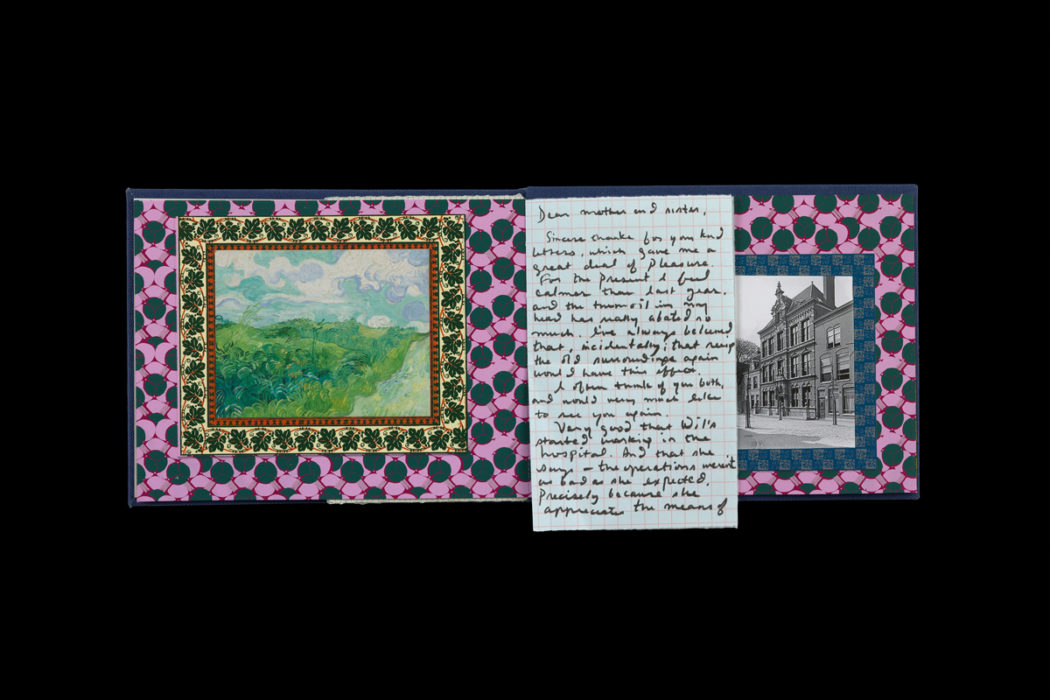 Dear mother and sister,
Sincere thanks for your kind
letters, which gave me a
great deal of pleasure.
For the present I feel
calmer than last year,
and the turmoil in my
head has really abated so
much. I've always believed
that, incidentally, that seeing
the old surroundings again
would have this effect.
I often think of you both,
and would very much like
to see you again.
Very good that Wil's
started working in the
hospital. And that she
says — the operations weren't
as bad as she expected,
Precisely because she
appreciates the means of